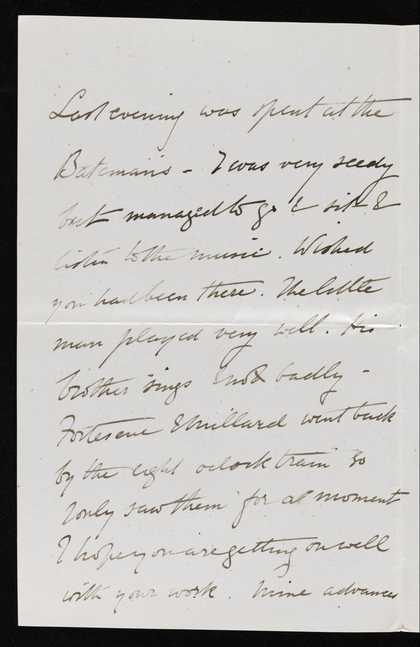 Last evening was spent at the
Bateman's - I was very seedy
but managed to go & sit &
listen to the music. Wished
you had been there. The little
man played very well. His
brother sings & not badly -
Fortescue & Millard went back
by the eight oclock train so
I only saw them for a moment
I hope you are getting on well
with your work. Mine advances